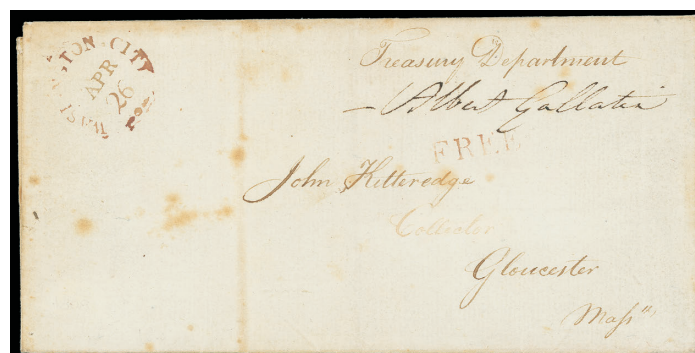 WASHINGTON CITY
APR
26
Treasury Department
— Albert Gallatin
FREE
John Kitteredge
Collector
Gloucester
Massts